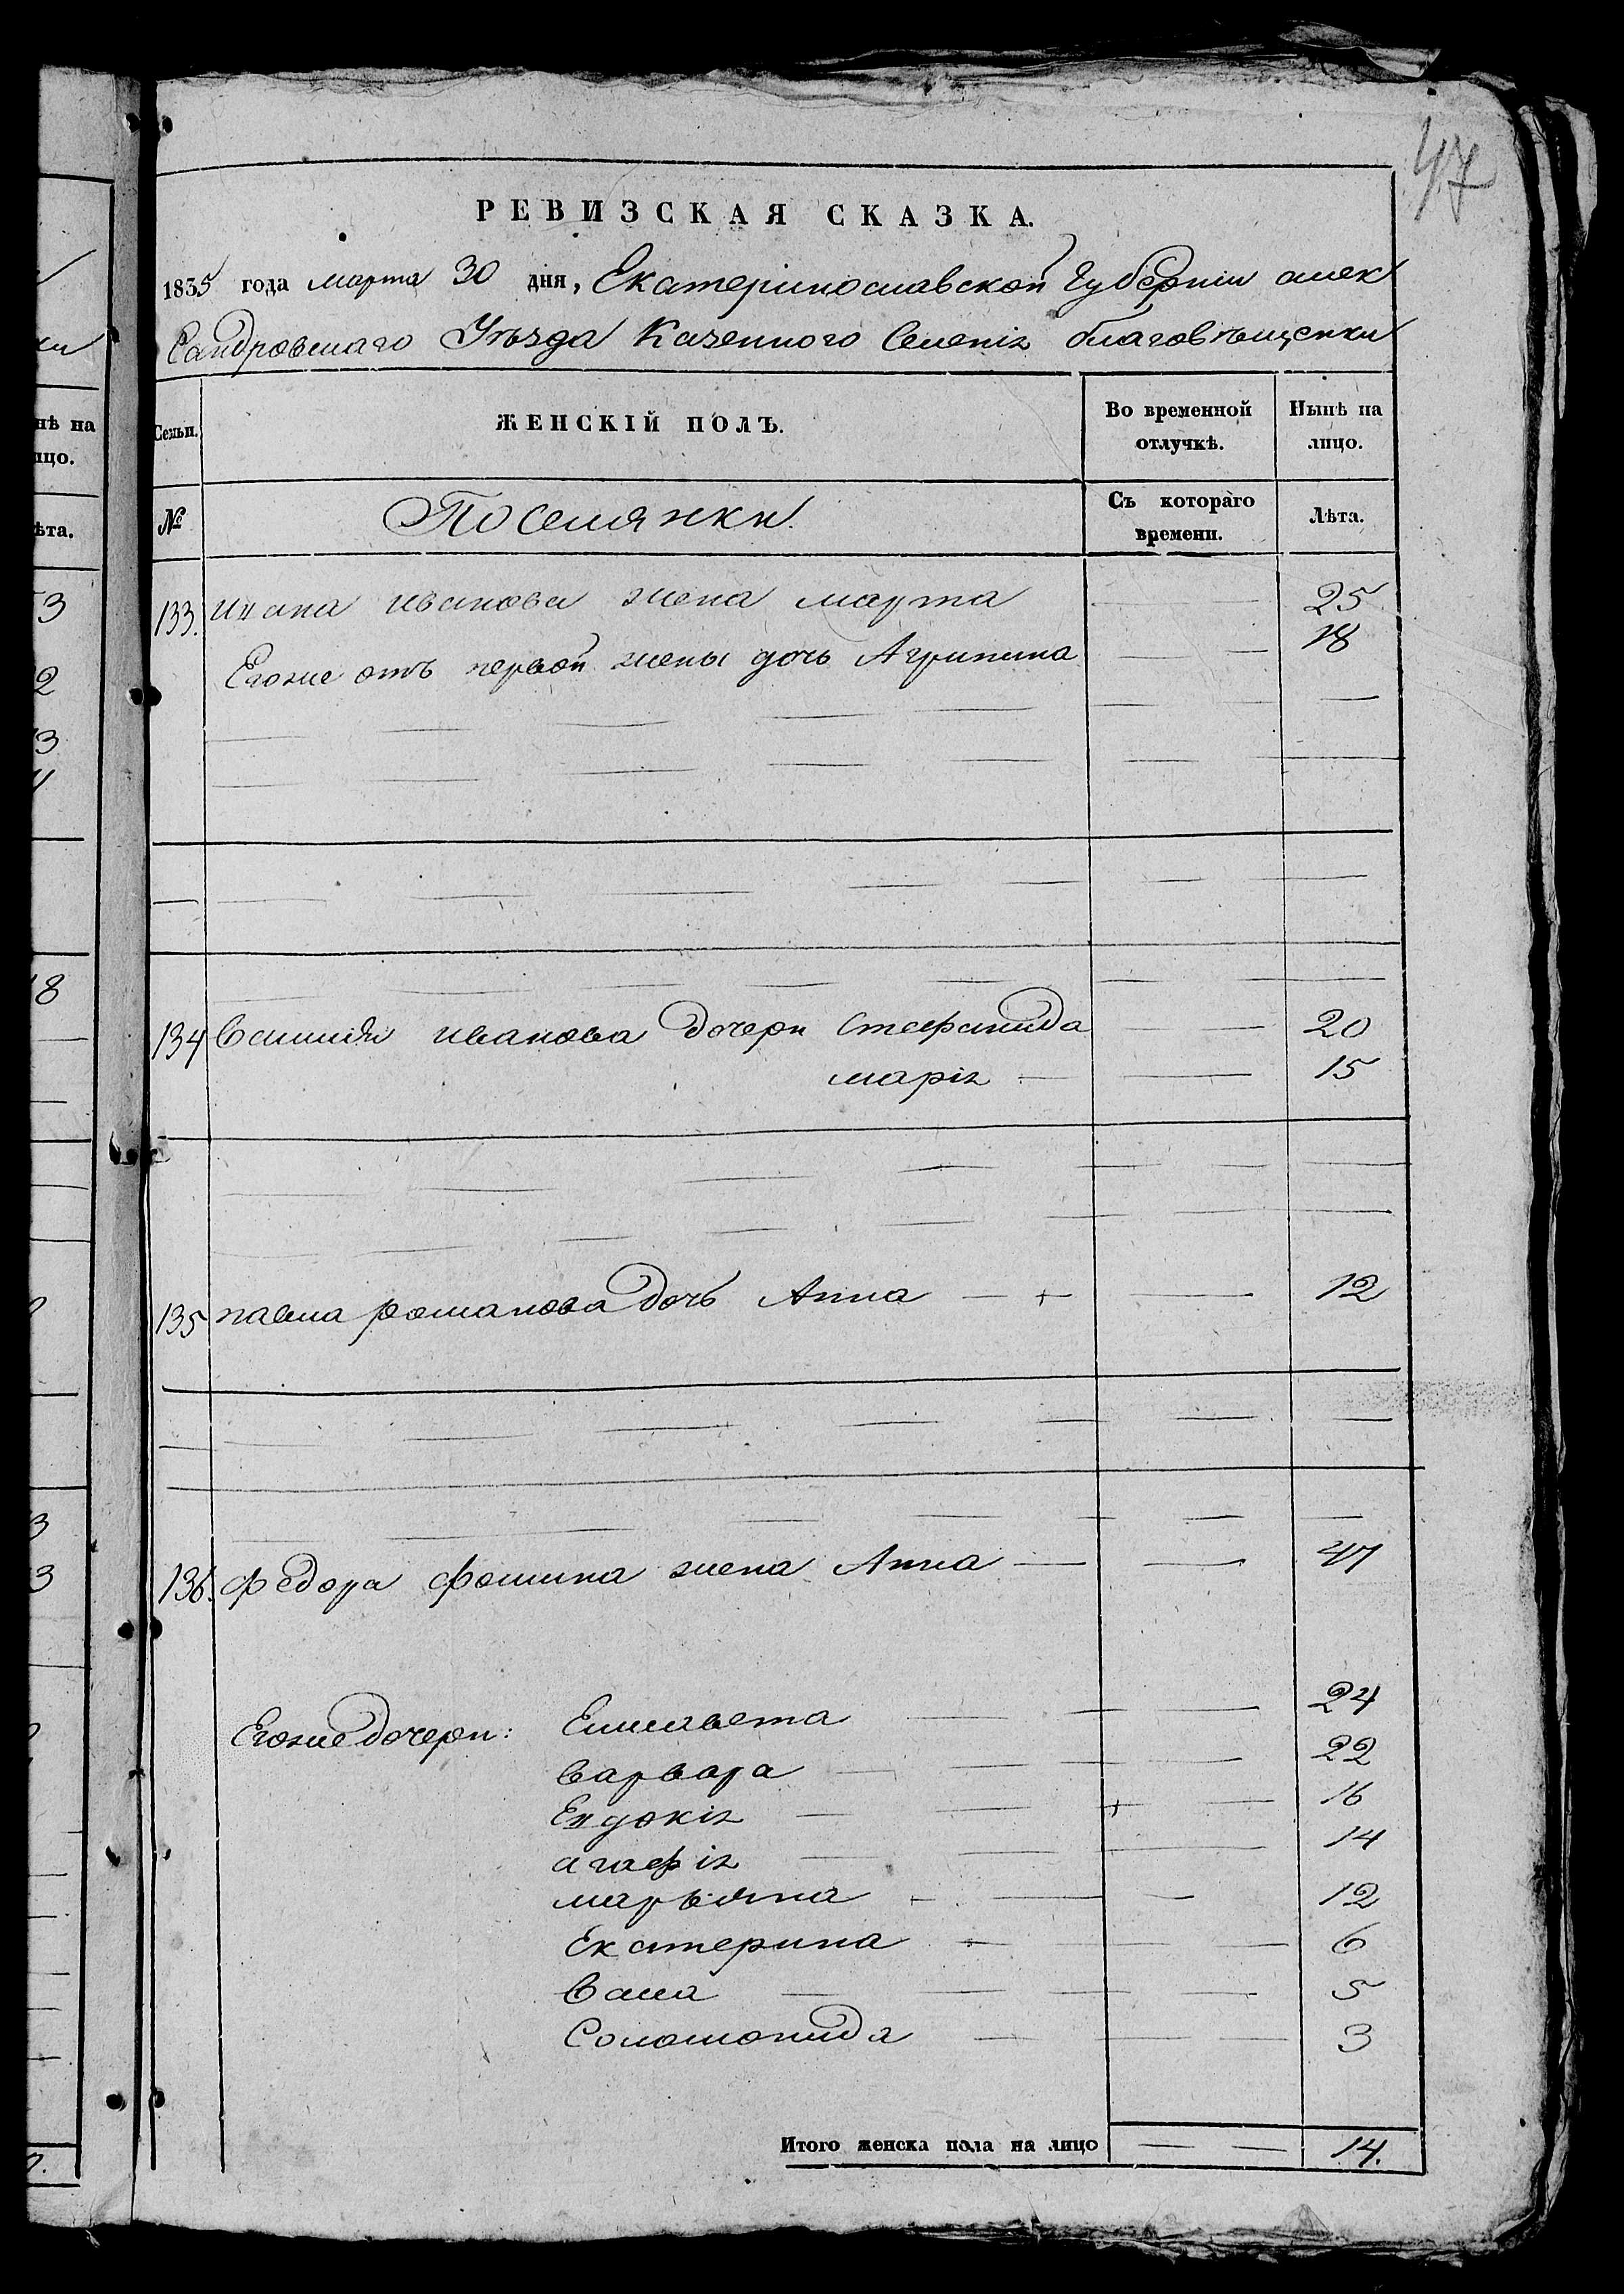 47
РЕВИЗСКАЯ СКАЗКА.
1835 года марта 30 дня, Екатеринославской Губернии алек
Сандровшаго Уѣзда Казенного Селенія благовѣщенки
Семьи. ЖЕНСКІЙ ПОЛЪ. Во временной отлучкѣ. Нынѣ на лицо.
№ Поселянки. Съ котораго времени. Лѣта.
133. ивана иванова жена марта 25
Егоже отъ первой жены дочь Агрипина 18
134 Василія иванова дочери Стефанида 20
марія 15
135 павла романова дочь Анна 12
136. федора фомина жена Анна 47
Егоже дочери: Елисавета 24
варвара 22
Евдокія 16
агафія 14
марьяна 12
Екатерина 6
Васса 5
Соломонида 3
Итого женска пола на лицо 14.